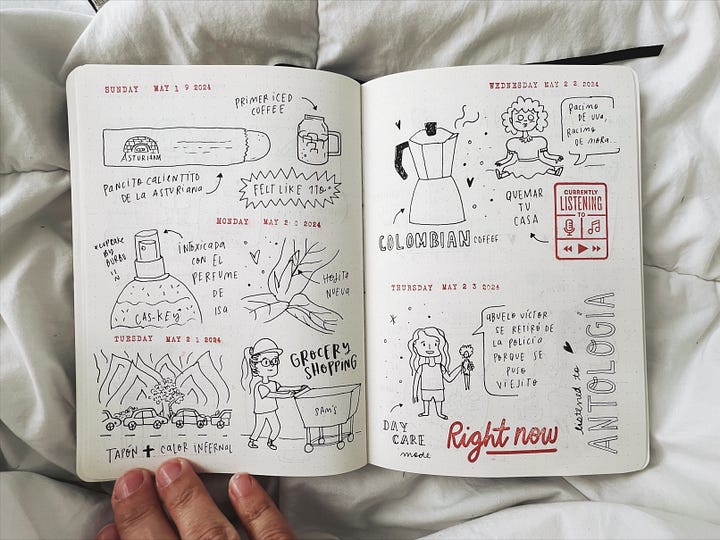 SUNDAY MAY 19 2024
PRIMER ICED
COFFEE
ASTURIANA
PANCITO CALIENTITO
DE LA ASTURIANA
FELT LIKE 110°
MONDAY MAY 20 2024
INTOXICADA
CON EL
PERFUME
DE
ISA
CAS-KEY
HOJITA
NUEVA
TUESDAY MAY 21 2024
TAPÓN + CALOR INFERNAL
GROCERY
SHOPPING
SAM'S
WEDNESDAY MAY 22 2024
RACIMO
DE UVA,
RACIMO
DE MORA..
QUEMAR
TU
CASA
CURRENTLY
LISTENING
TO
COLOMBIAN COFFEE
THURSDAY MAY 23 2024
ABUELO VÍCTOR
SE RETIRÓ DE
LA POLICÍA
PORQUE SE
PUSO
VIEJITO
DAY
CARE
mode
Right now
listened to
ANTOLOGÍA